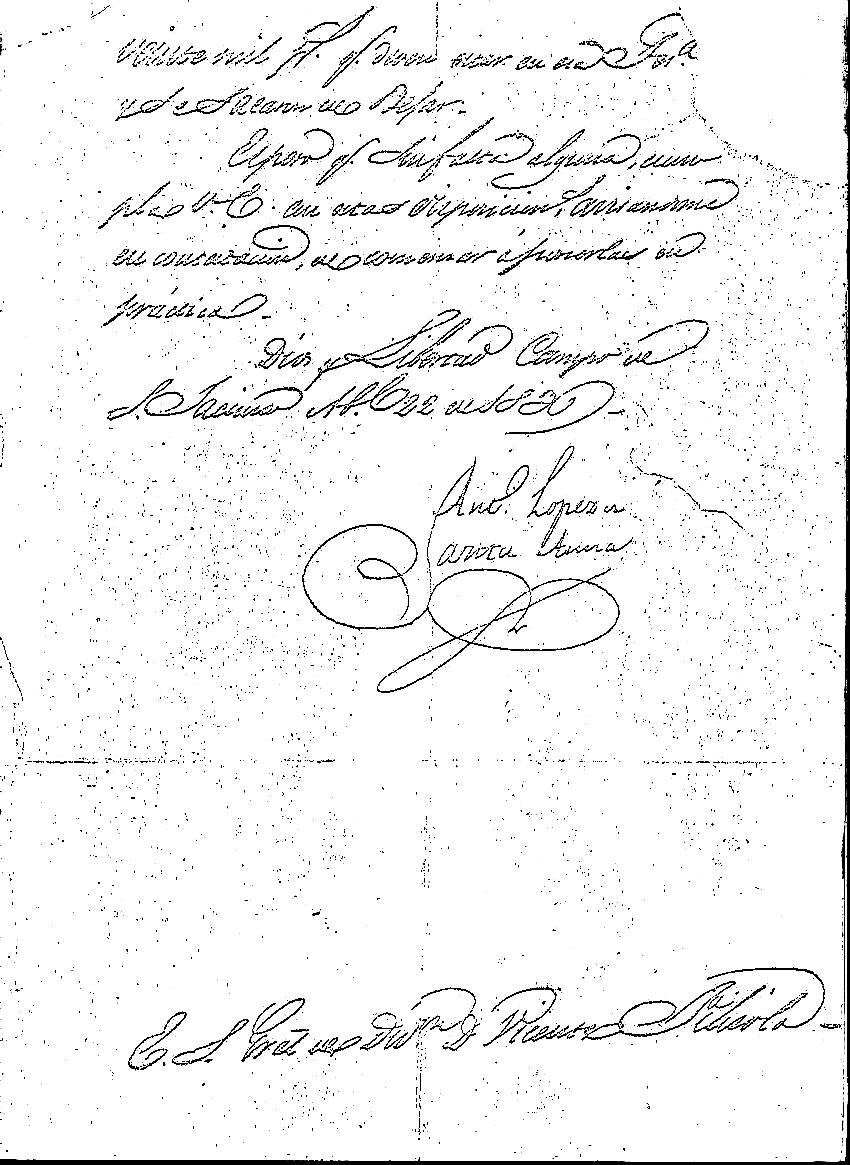 veinte mil p.s q.e deven estar en esa Tes.a
y de Sacarse de Bejar.
Espero q.e sin falta alguna, cum
pla V. E. con estas disposiciones, avisandome
en contestacion, de comensar á ponerlas en
práctica.
Dios y Libertad Campo de
S. Jacinto Ab.l 22 de 1836.
Ant.o Lopez de
Santa Anna
E. S. Gral de Divi.on D. Vicente Filisola